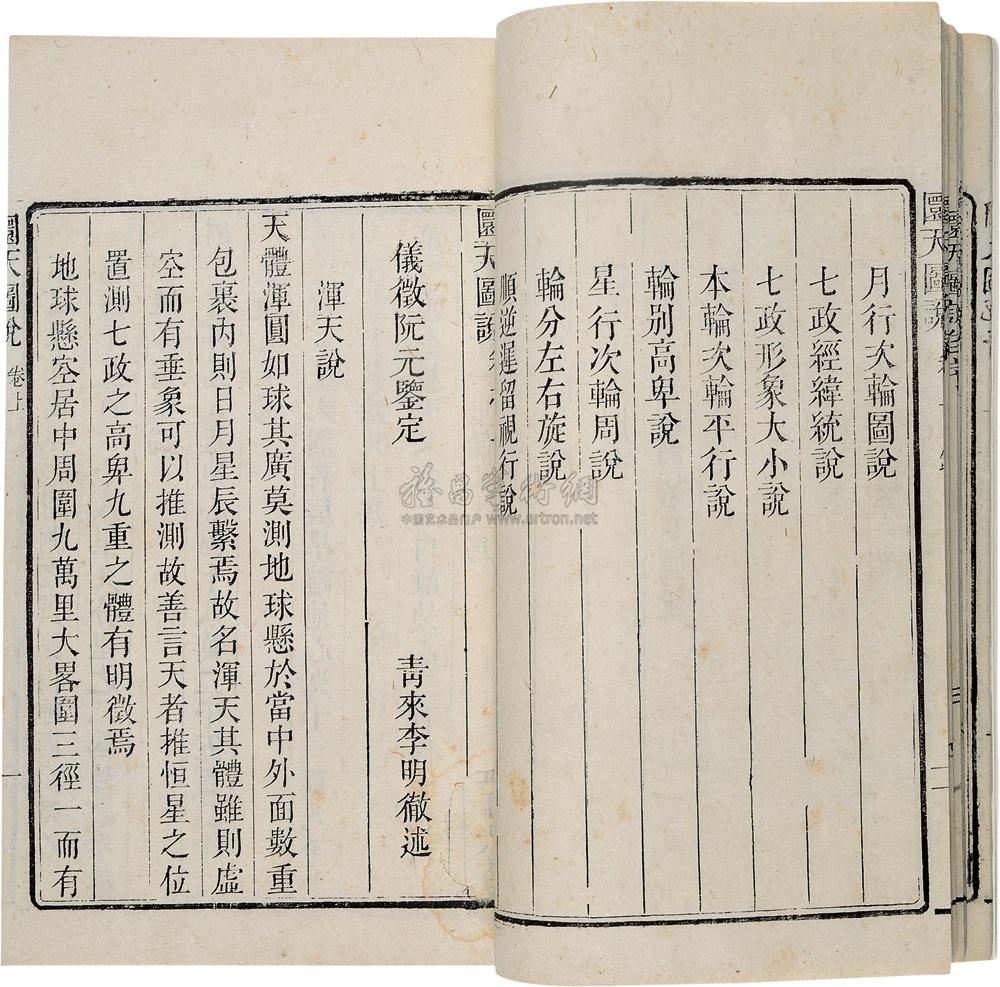 月行次輪圖說
七政經緯統說
七政形象大小說
本輪次輪平行說
輪別高卑說
星行次輪周說
輪分左右旋說
順逆遲留視行說
圜天圖說
儀徵阮元鑒定
青來李明徹述
渾天說
天體渾圓如球其廣莫測地球懸於當中外面數重
包裹內則日月星辰繫焉故名渾天其體雖則虛
空而有垂象可以推測故善言天者推恒星之位
置測七政之高卑九重之體有明徵焉
地球懸空居中周圍九萬里大畧圍三徑一而有
圜天圖說 卷上
一
中国艺术品门户 www.artron.net